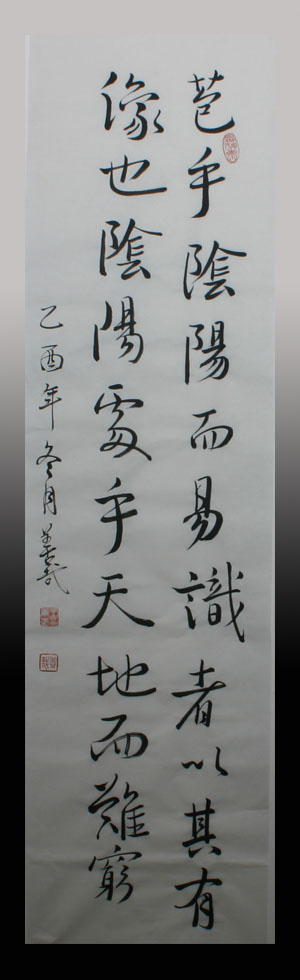 苞乎陰陽而易識者以其有
像也陰陽處乎天地而難窮
乙酉年冬月善哉